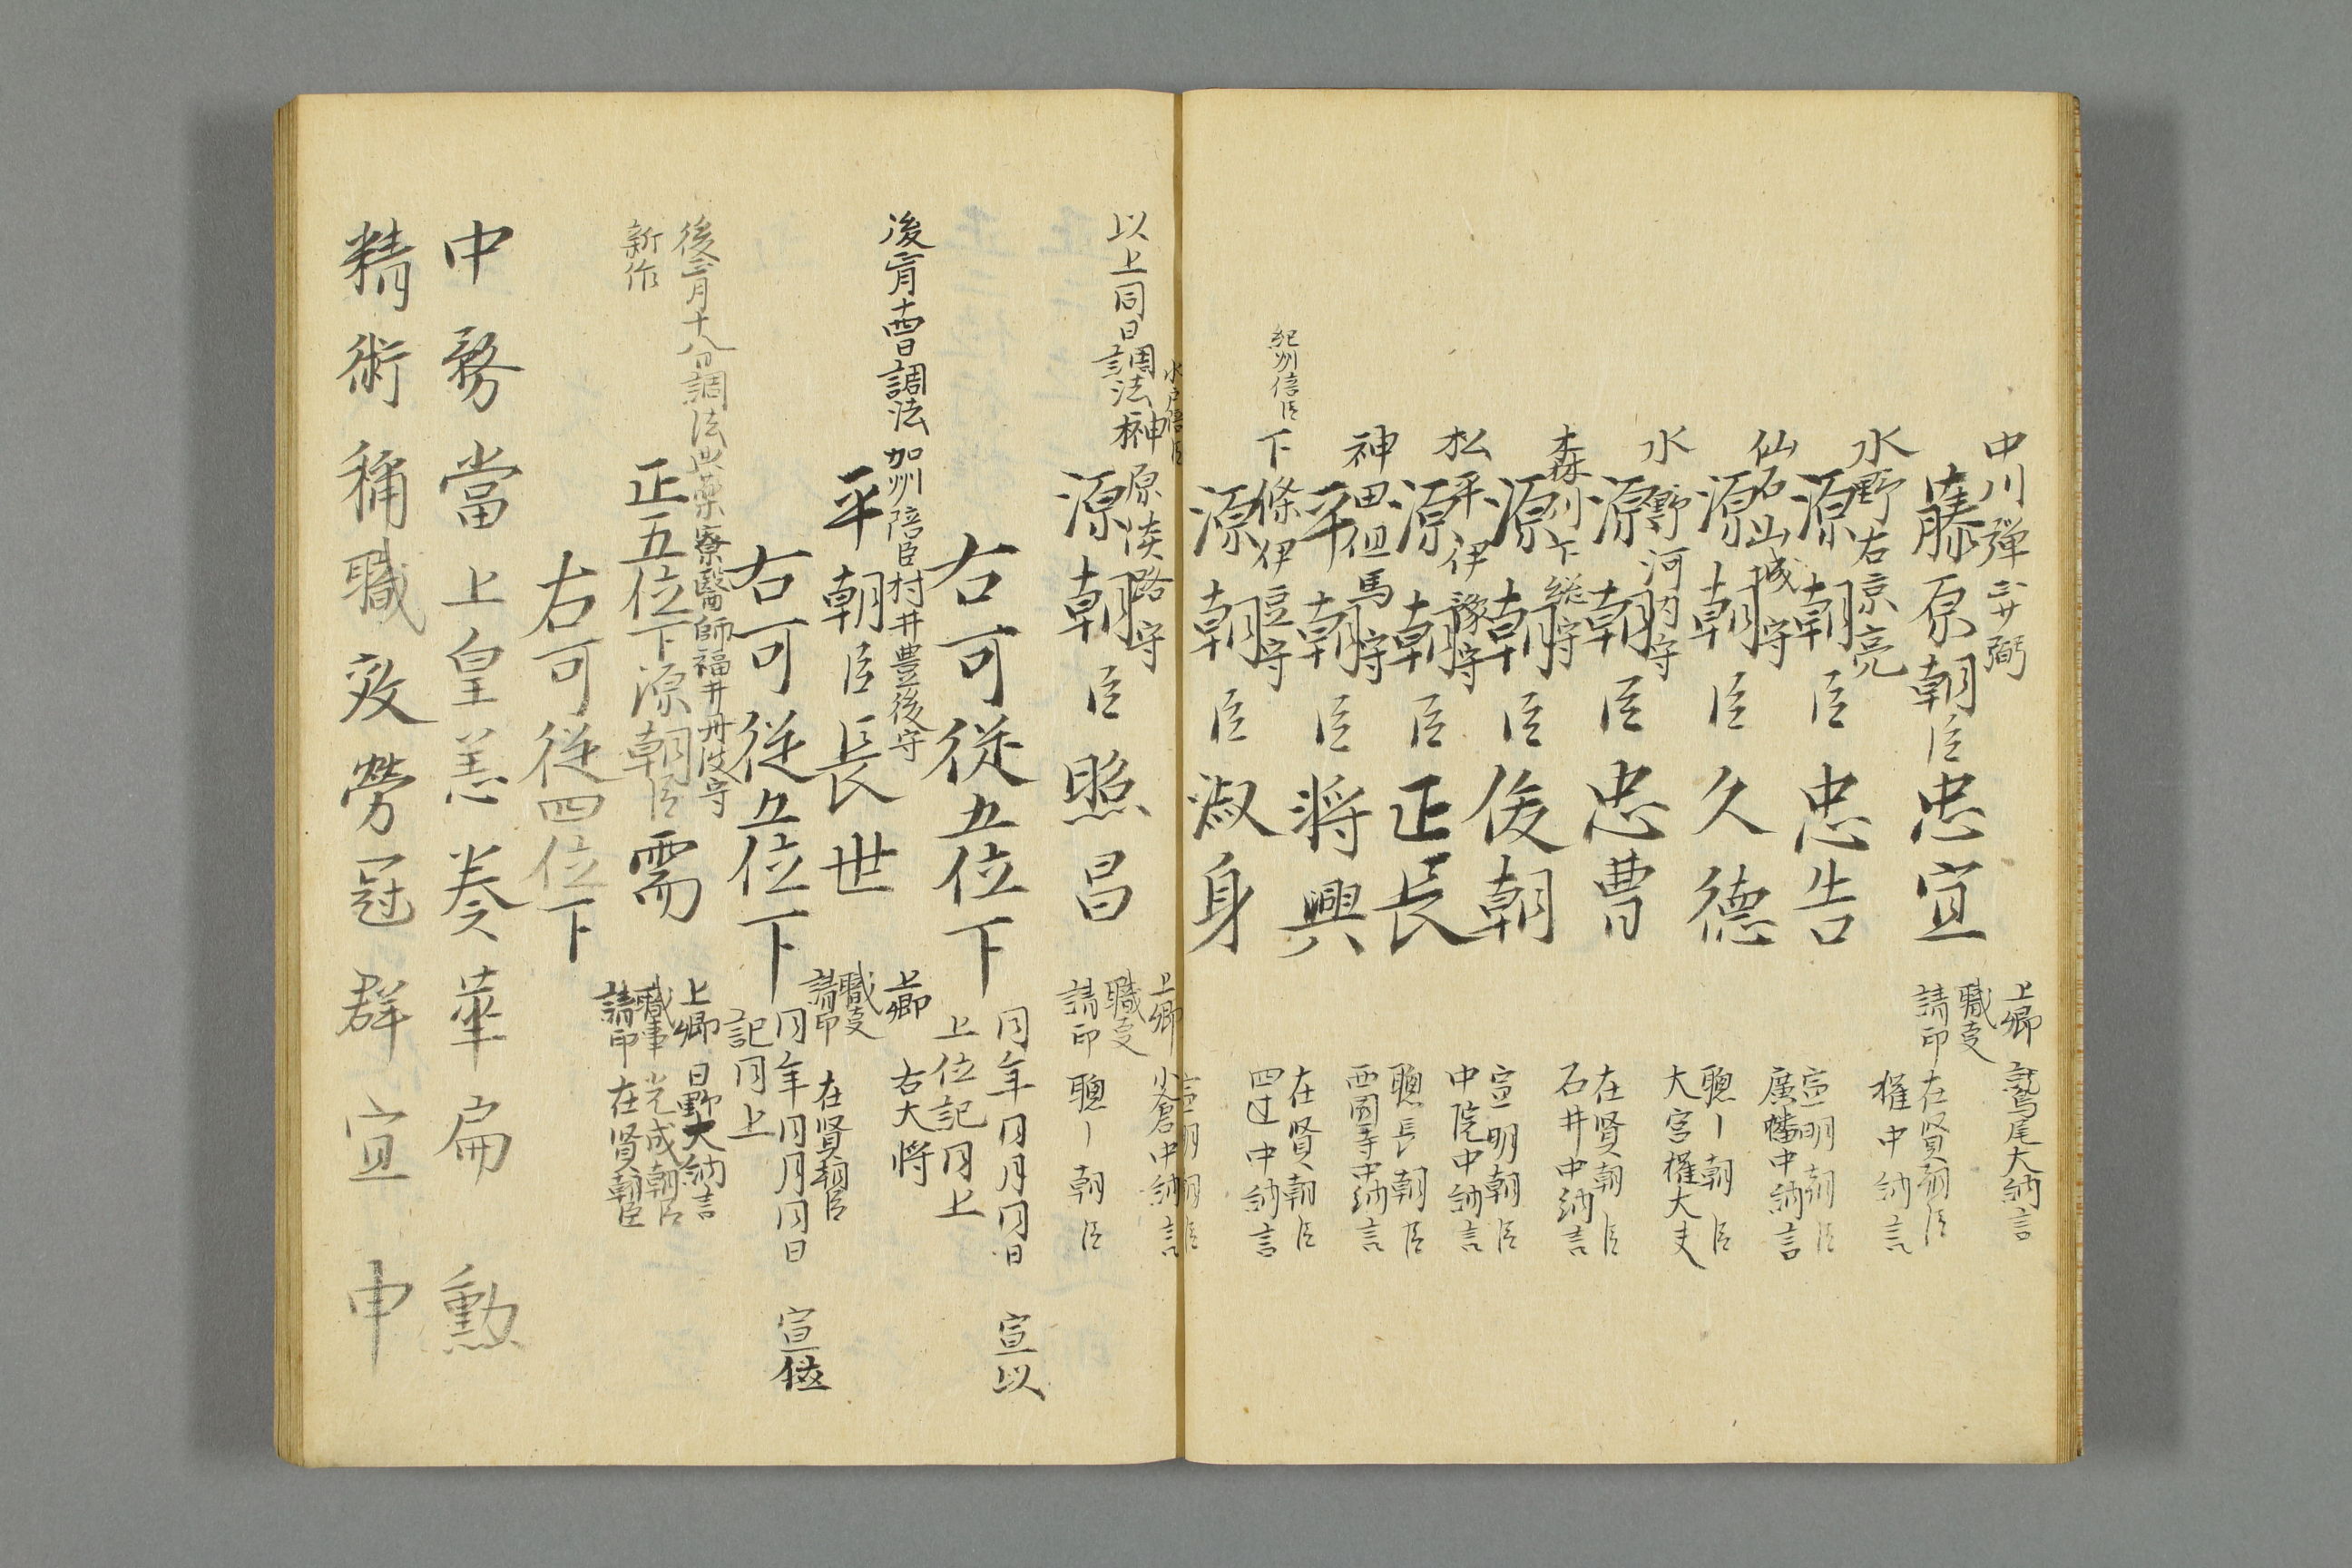 中川弾正少弼
藤原朝臣忠宜
上卿 鷲尾大納言
職事 在賢朝臣
請印
水野右京亮
源朝臣忠告
権中納言
宣明朝臣
仙石山城守
源朝臣久徳
廣幡中納言
聰ー朝臣
水野河内守
源朝臣忠曹
大宮権大夫
在賢朝臣
森川下総守
源朝臣俊朝
石井中納言
宣明朝臣
松平伊豫守
源朝臣正長
中院中納言
聰長朝臣
神田但馬守
平朝臣将興
西園寺中納言
在賢朝臣
紀州倍臣
下條伊豆守
源朝臣淑身
四辻中納言
宣明朝臣
水戸倍臣
以上同日調法榊原淡路守
源朝臣照昌
上卿 小倉中納言
職事
請印 聰ー朝臣
右可従五位下
同年同月同日 宣以
上位記同上
後二月十四日調法 加州陪臣村井豊後守
平朝臣長世
上卿 右大将
職事 在賢朝臣
請印
右可従五位下
同年同月同日 宣
記同上
後二月十八日調法典薬寮醫師福井丹波守
新作
正五位下源朝臣需
上卿 日野大納言
職事 光成朝臣
請印 在賢朝臣
右可従四位下
中務當上皇恙奏華扁勲
精術稱職效勞冠群宜申